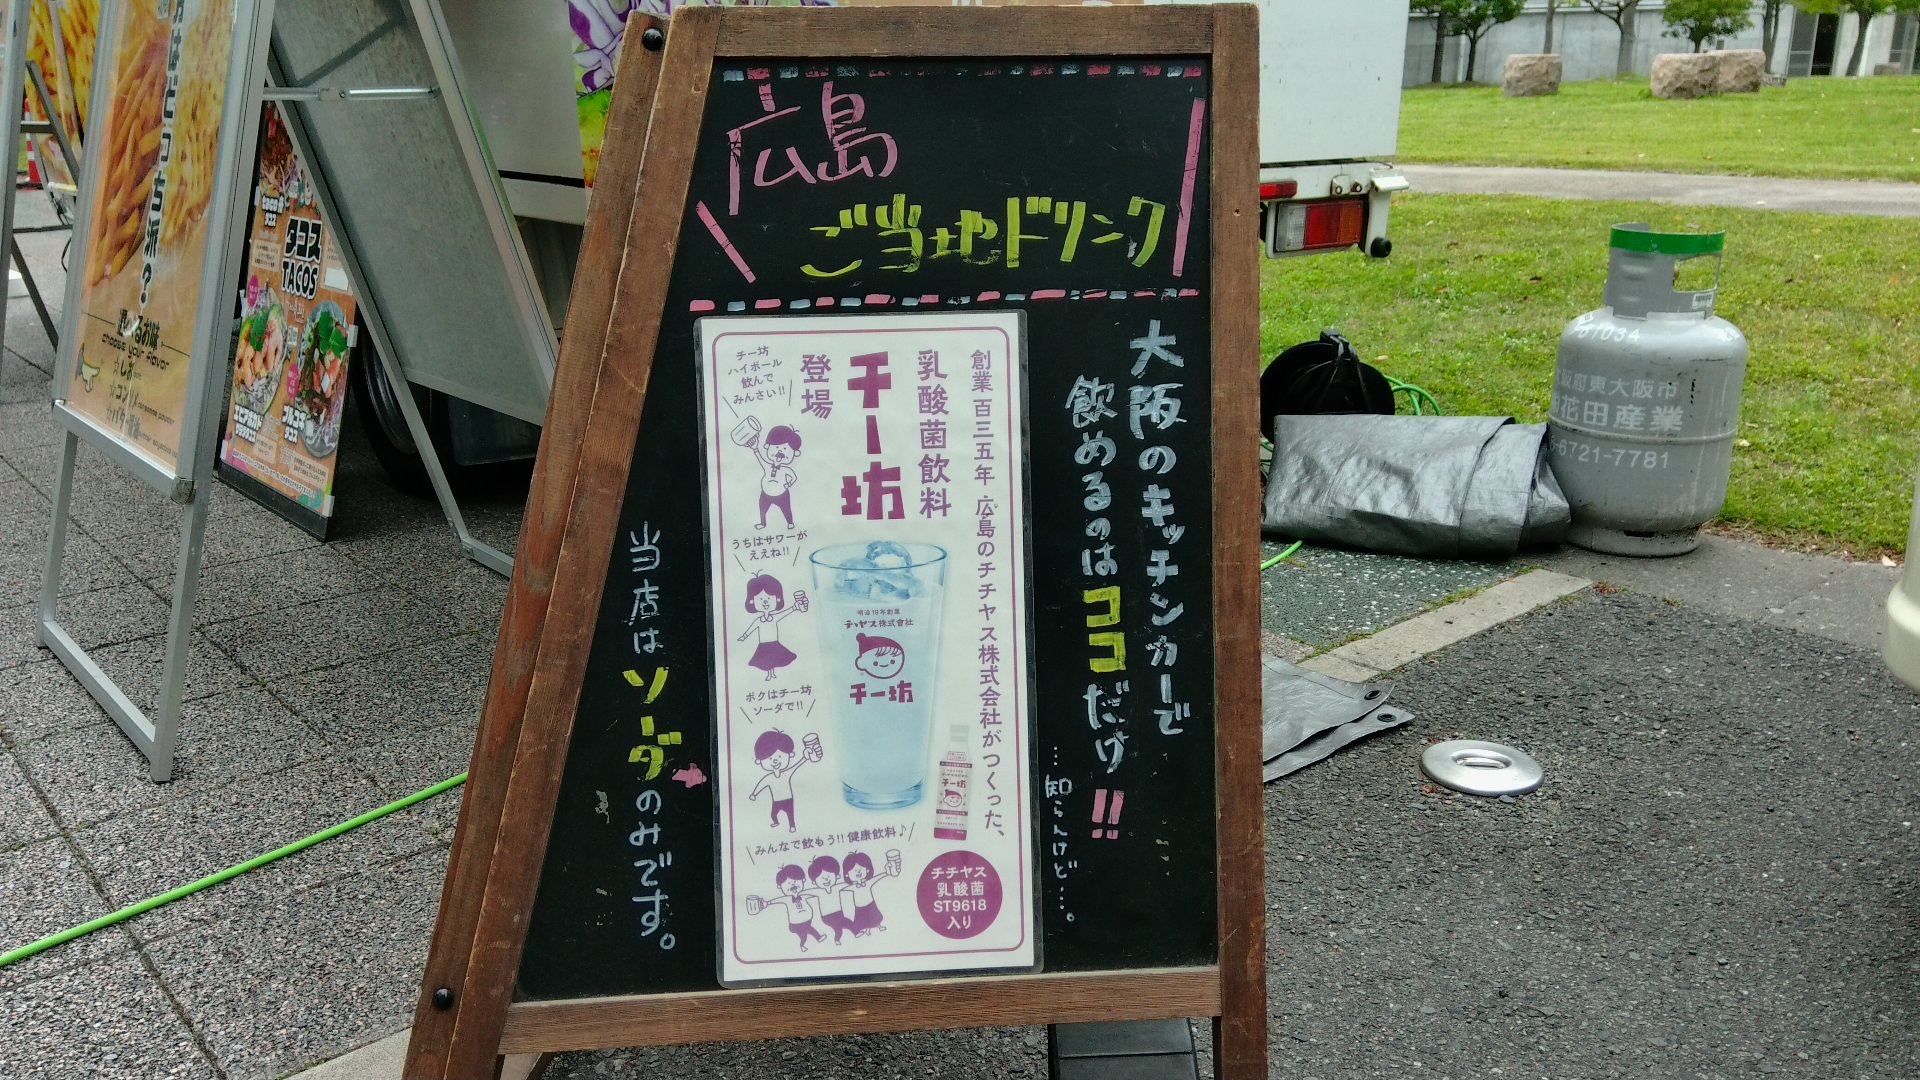 広島
ご当地ドリンク
大阪のキッチンカーで
飲めるのはココだけ!!
…知らんけど…。
創業百三五年 広島のチチヤス株式会社がつくった、
乳酸菌飲料
チー坊
登場
チー坊
ハイボール
飲んで
みんさい!!
うちはサワーが
ええね!!
ボクはチー坊
ソーダで!!
みんなで飲もう!! 健康飲料♪
明治19年創業
チチヤス株式會社
チー坊
チー坊
チチヤス
乳酸菌
ST9618
入り
当店は
ソーダのみです。
はどっち派?
選べるお味
choose your flavor
タコス
TACOS
阪府東大阪市
花田産業
-6721-7781